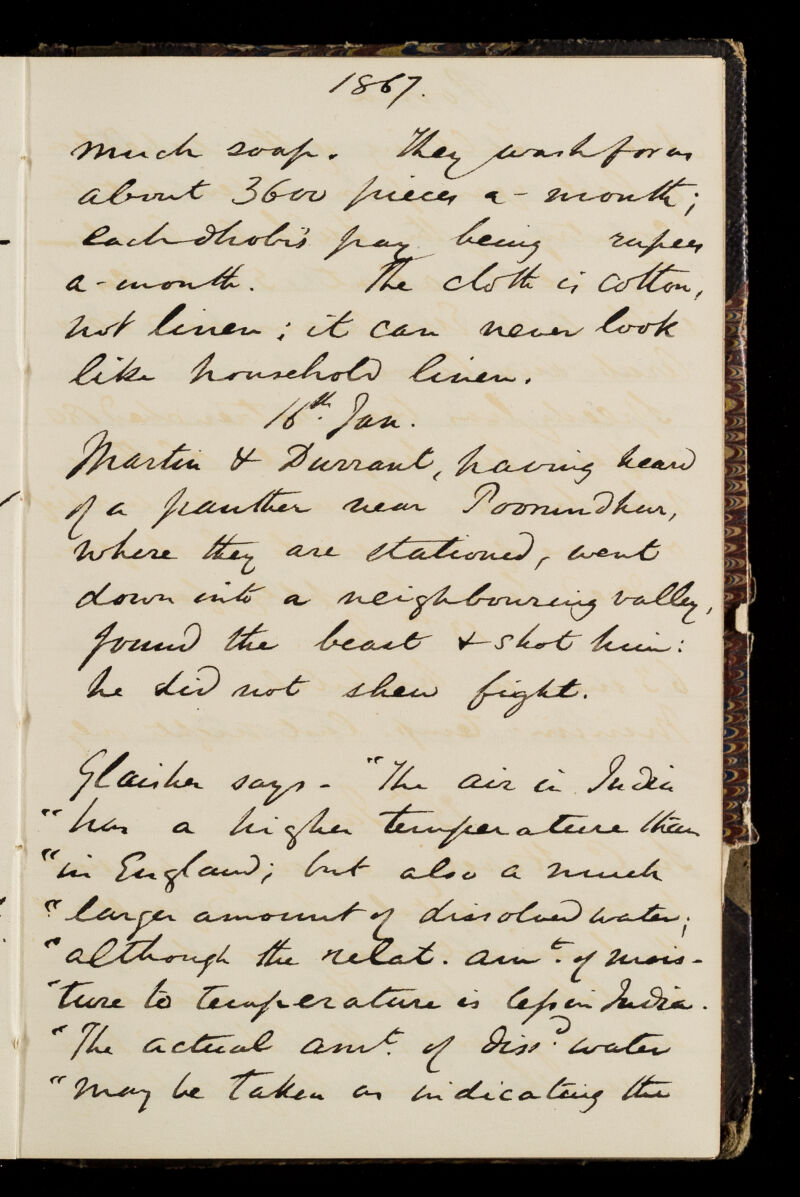 1867.
much soap. They wash for us
about 3600 pieces a-month;
each dhobi's pay being rupees
a-month. The cloth is cotton,
not linen; it can never look
like household linen.
16th. Jan.
Martin & Durrant, having heard
of a panther near Poorundhur,
where they are stationed, went
down into a neighbouring valley,
found the beast & shot him:
he did not shew fight.
Glaisher says - "The air in India
"has a higher temperature than
"in England; but also a much
"larger amount of dissolved water;
"although the relat. amt. of mois-
"ture to temperature is less in India.
"The actual amt. of dissd. water
"may be taken as indicating the